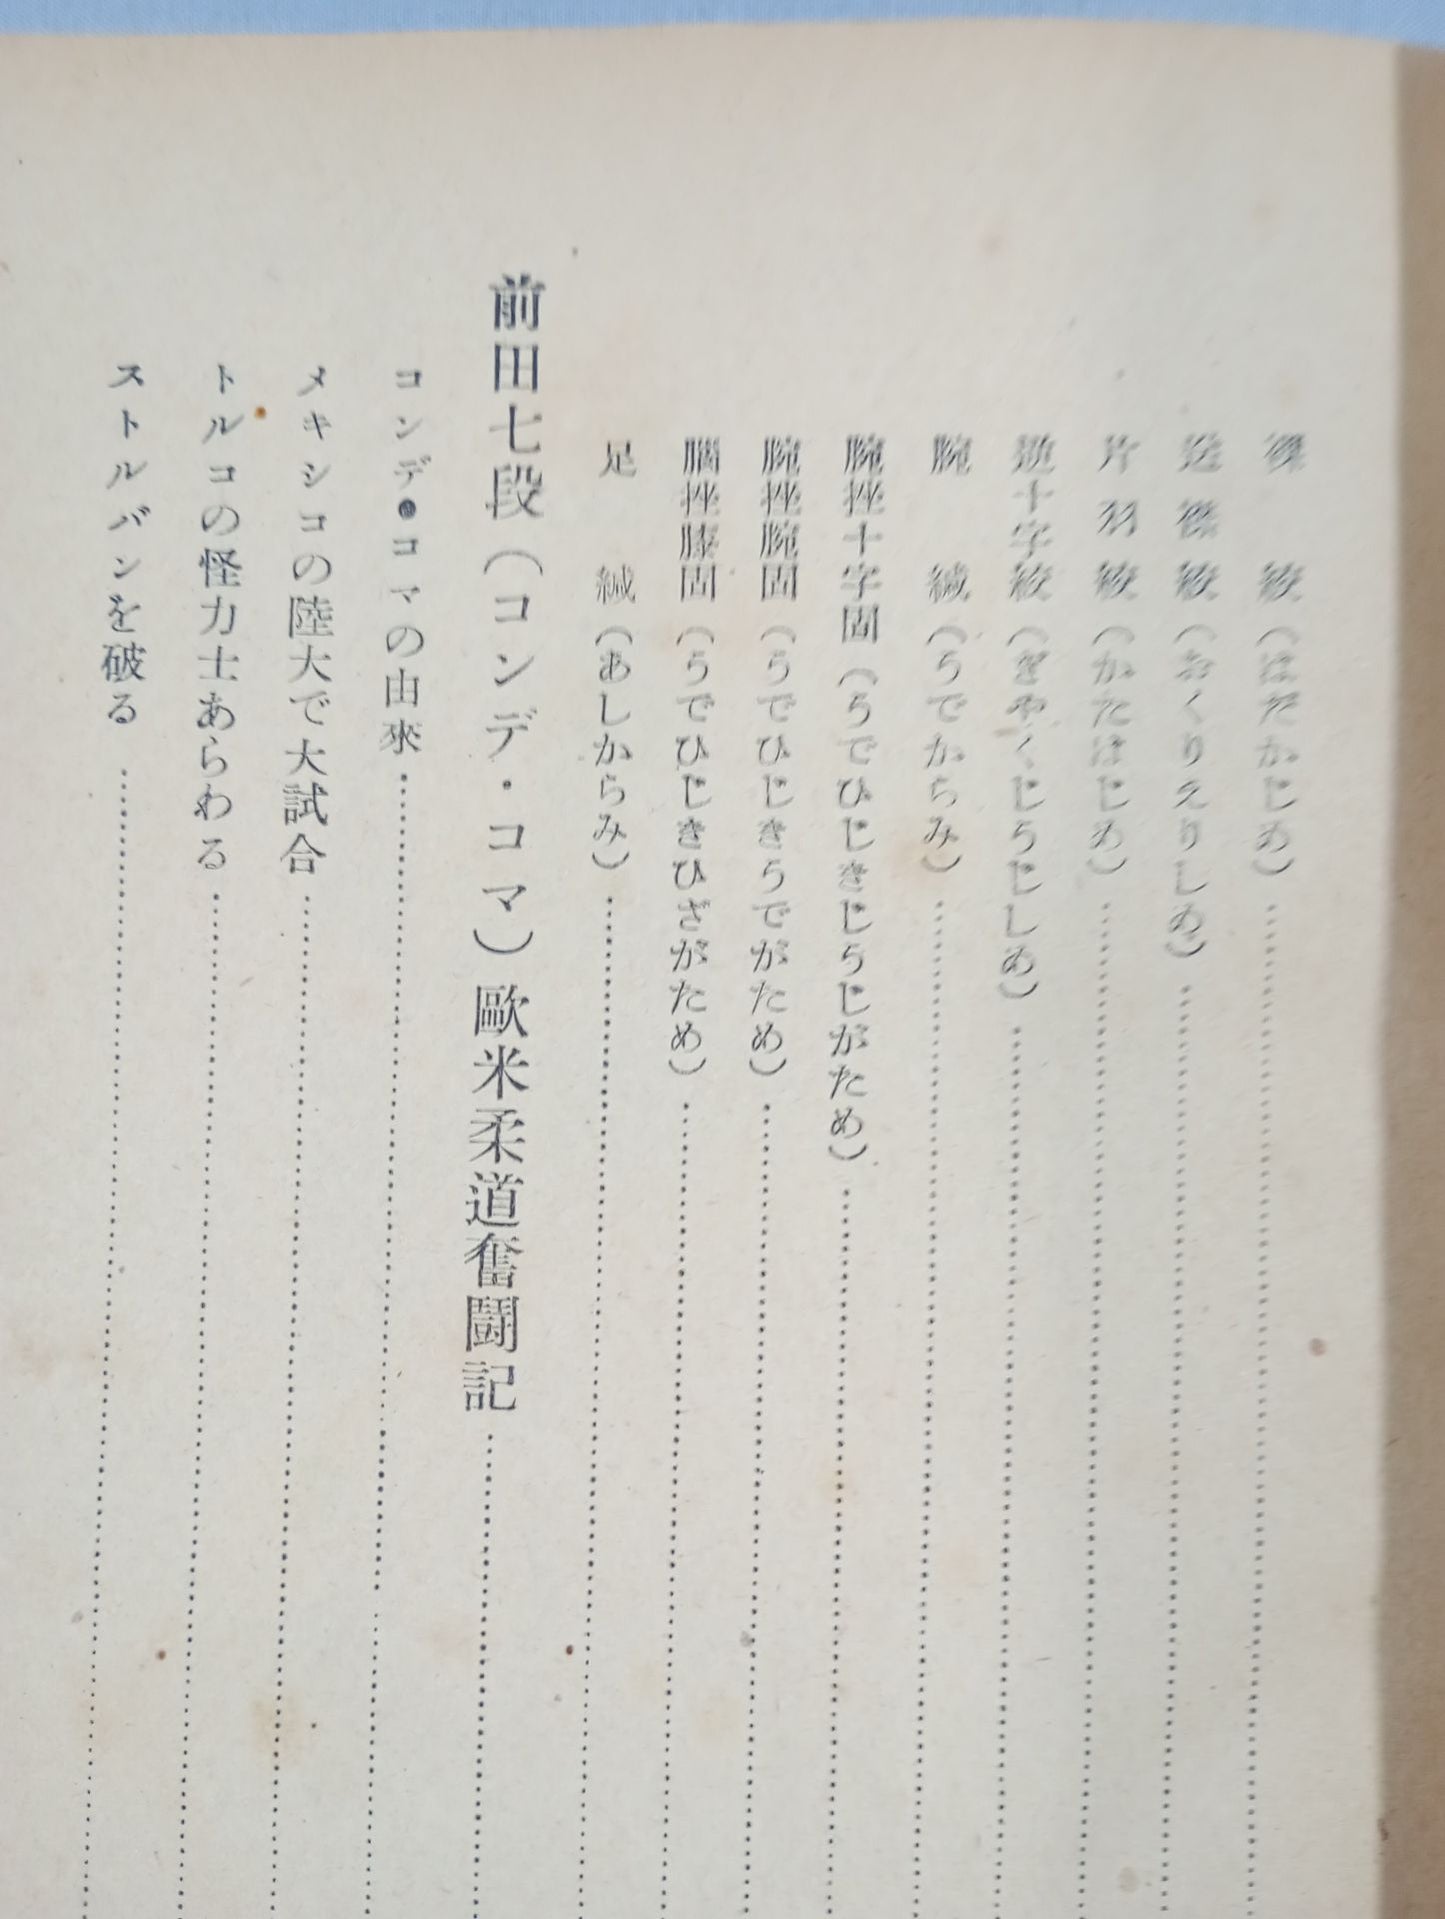 裸絞(はだかじめ)
送襟絞(おくりえりしめ)
片羽絞(かたはじめ)
逆十字絞(ぎやくじうじしめ)
腕緘(うでからみ)
腕挫十字固(うでひじきじうじがため)
腕挫腕固(うでひじきうでがため)
腕挫膝固(うでひじきひざがため)
足緘(あしからみ)
前田七段(コンデ・コマ)歐米柔道奮鬪記
コンデ・コマの由來
メキシコの陸大で大試合
トルコの怪力士あらわる
ストルバンを破る